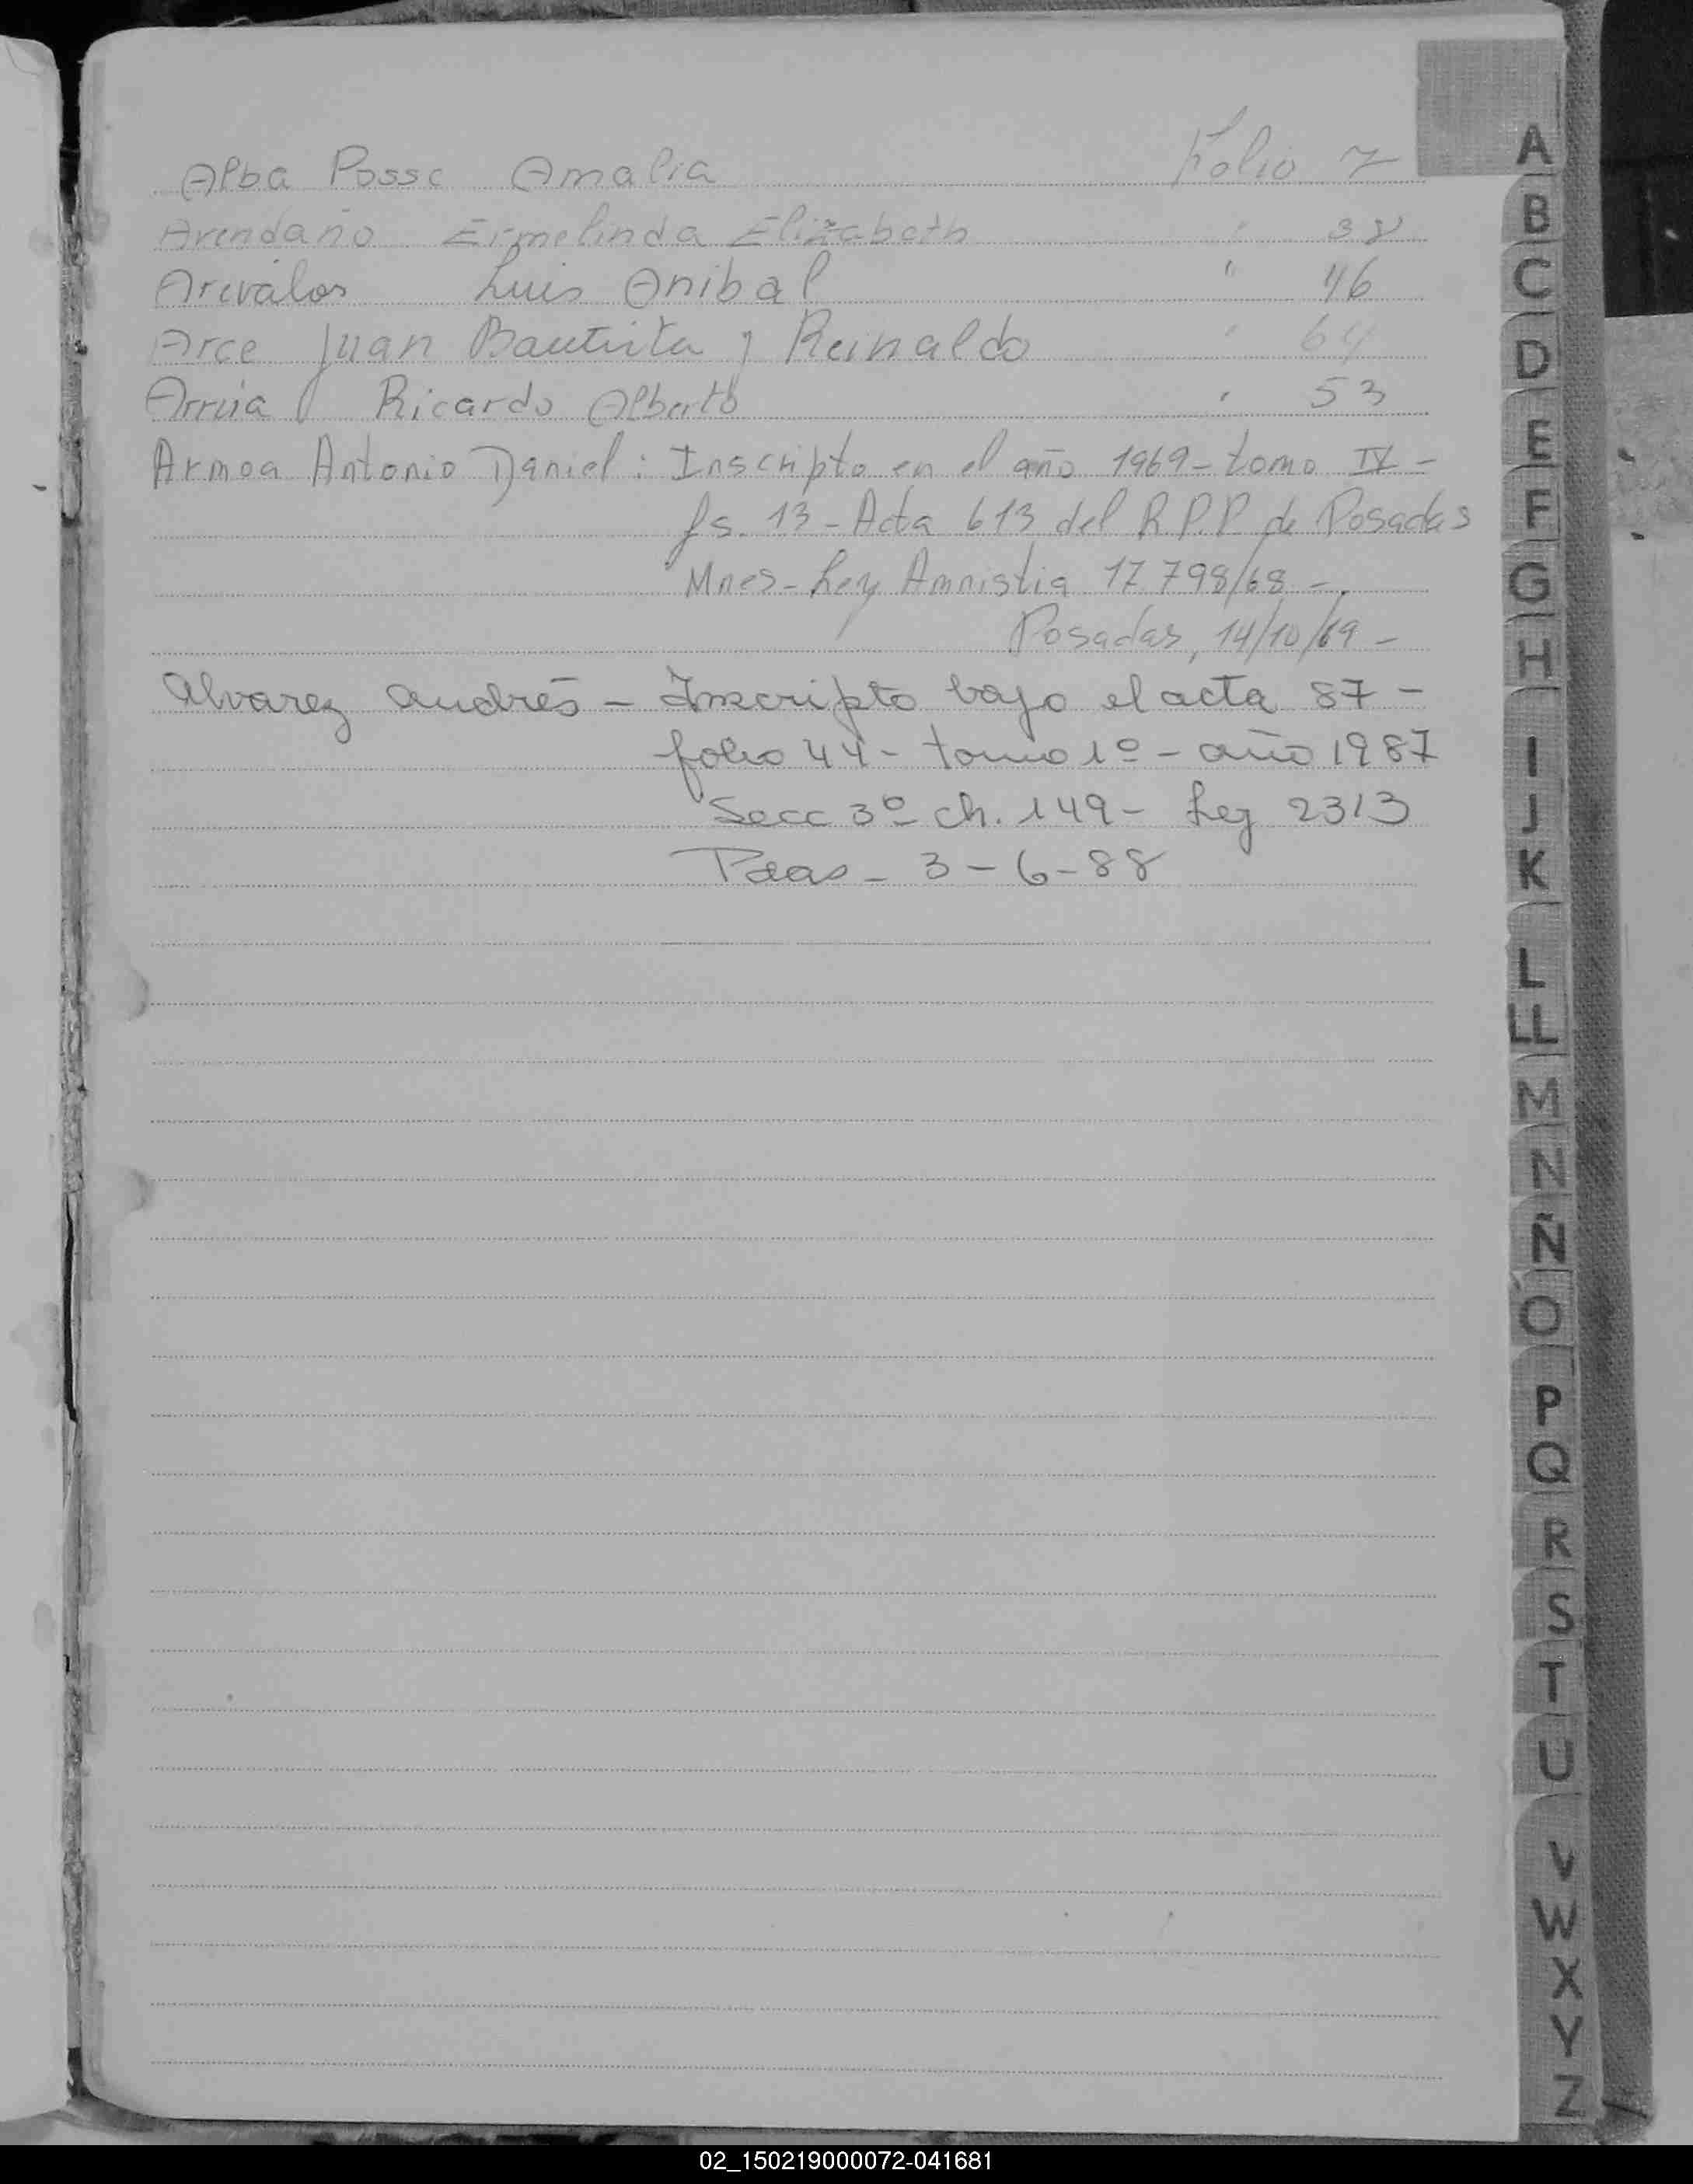 Alba Posse Amalia Folio 7
Avendaño Ermelinda Elizabeth " 38
Arevalos Luis Anibal " 46
Arce Juan Bautista y Reinaldo " 64
Arrúa Ricardo Alberto " 53
Armoa Antonio Daniel: Inscripto en el año 1969 - tomo IV -
fs. 13 - Acta 613 del R.P.P de Posadas
Mnes - Ley Amnistia 17.798/68 -.
Posadas, 14/10/69 -
Alvarez Andrés - Inscripto bajo el acta 87 -
folio 44 - tomo 1º - año 1987
Secc 3º ch. 149 - Leg 2313
Pdas - 3-6-88
A
B
C
D
E
F
G
H
I
J
K
L
LL
M
N
Ñ
O
P
Q
R
S
T
U
V
W
X
Y
Z
02_150219000072-041681